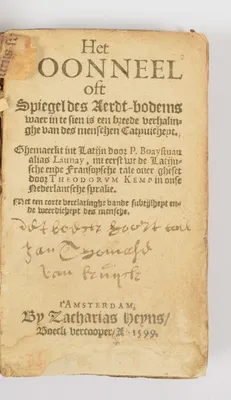 Het
TOONNEEL
oft
Spiegel des Aerdt-bodems
waer in te sien is een breede verhalin-
ghe van des menschen Catyvicheyt.
Ghemaeckt int Latijn door P. Boaystuau
alias Launay, nu eerst wt de Latijn-
sche ende Fransoysche tale over gheset
door THEODORVM KEMP in onse
Nederlantsche sprake.
Met een corte verclaringhe vande subtijlheyt ende
weerdicheyt des mensche.
dit boeck hoort toe
Jan
van
t'AMSTERDAM,
By Zacharias Heyns/
Boeck vercooper/ A° 1599.